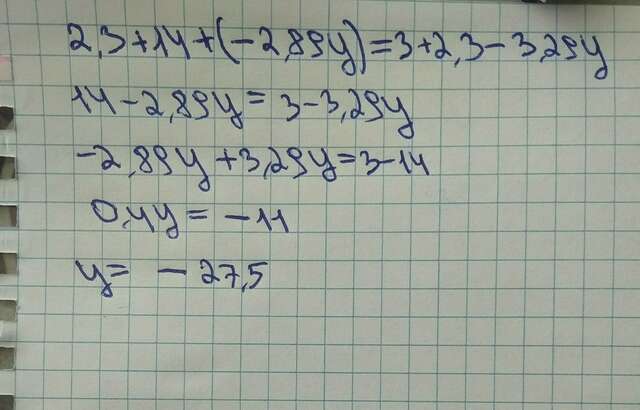 2,3+14+(-2,89y)=3+2,3-3,29y
14-2,89y=3-3,29y
-2,89y+3,29y=3-14
0,4y=-11
y=-27,5